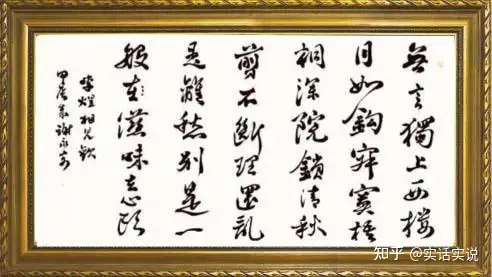 無言獨上西樓
月如鈎寂寞梧
桐深院鎖清秋
剪不斷理還亂
是離愁別是一
般滋味心頭
李煜相見歡
甲辰謝永
知乎 @实话实说